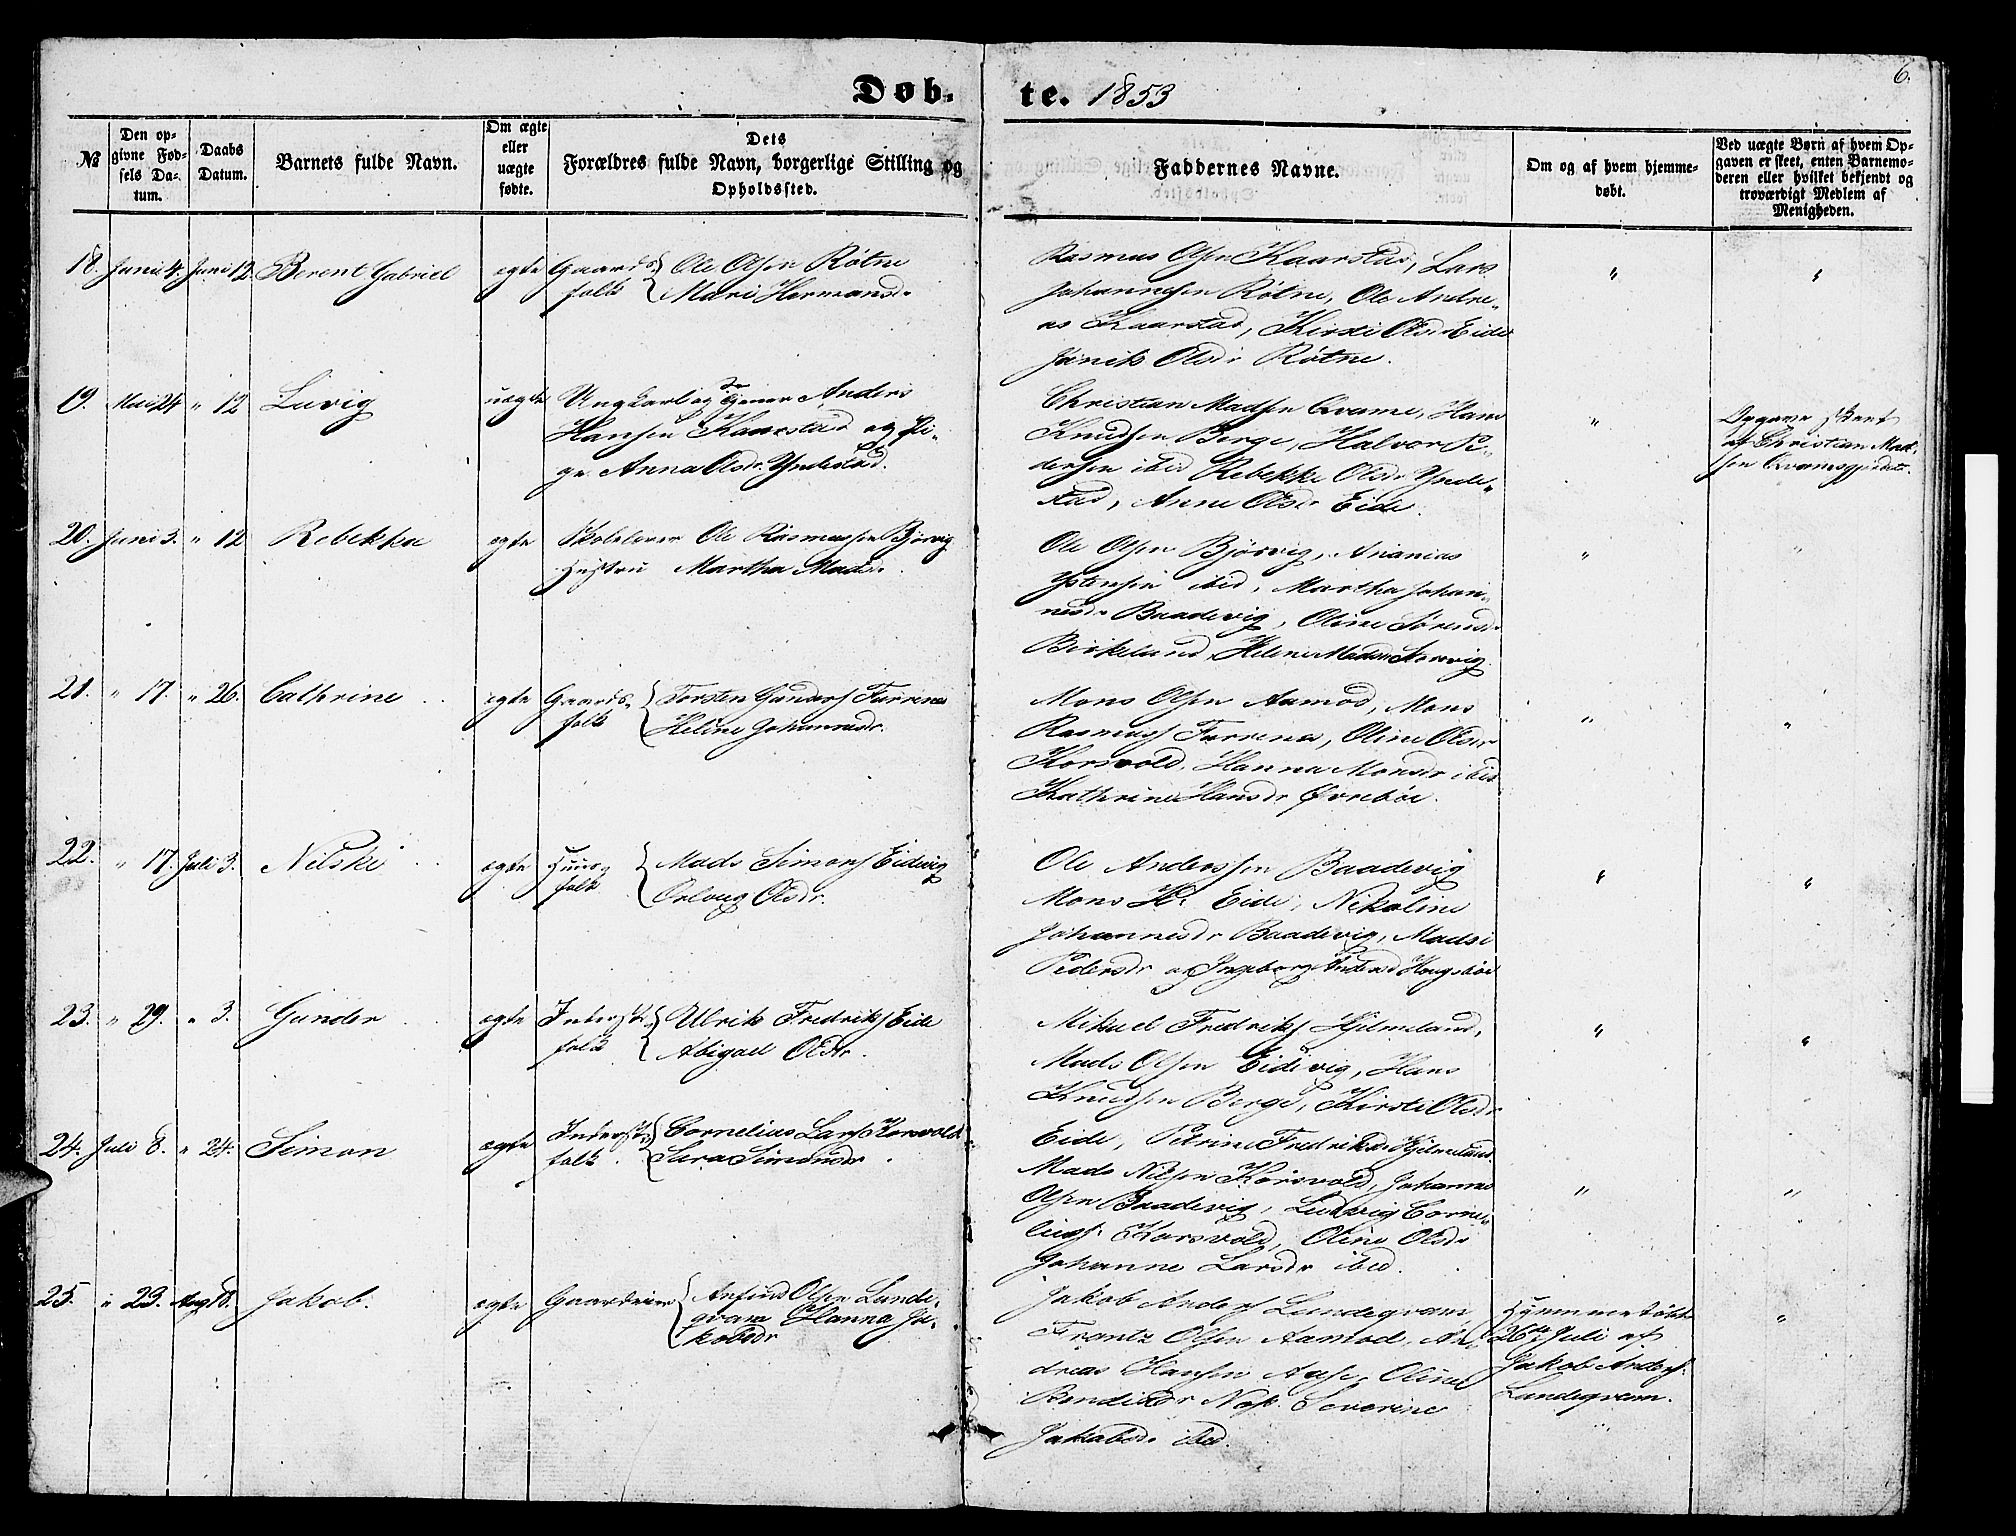 Døb-
te. 1853
6.
№
Den op-
givne Fød-
sels Da-
tum.
Daabs
Datum.
Barnets fulde Navn.
Om ægte
eller
uægte
fødte.
Dets
Forældres fulde Navn, borgerlige Stilling og
Opholdssted.
Faddernes Navne.
Om og af hvem hjemme-
døbt.
Ved uægte Børn af hvem Op-
gaven er skeet, enten Barnemo-
deren eller hvilket bekjendt og
troværdigt Medlem af
Menigheden.
18. Juni 4. Juni 12. Berent Gabriel ægte Gaards- Ole Olsen Røtne
folk Mari Hermansdr
Rasmus Olsen Kaarstad, Lars
Johannesen Røtne, Ole Andre-
as Kaarstad, Kirsti Olsdr Eide
Janik Olsdr Røtne.
" "
19. Mai 24 " 12 Luvig uægte Ungkarl og Anders
Hansen Kaarstad og Pi-
ge Anna Olsdr Yndestad.
Christian Madsen Qvame, Hans
Knudsen Berge, Halvor Pe-
dersen ibid Rebekke Olsdr Ynde-
stad, Anne Olsdr Eide.
"
Opgave skeet
af Christian Mad-
sen
20. Juni 3. " 12 Rebekka ægte Skolelærer Ole Rasmussen Bjørvig
Hustru Martha Madsdr.
Ole Olsen Bjørvig, Ananias
ibid, Martha Johan-
nesdr Baadevig, Oline Sørensdr
Birkeland, Helene Madsdr
" "
21. " 17. " 26. Cathrine ægte Gaards- Torsten Gunders Farrenes
folk Heline Johannesdr.
Mons Olsen Aamod, Mons
Rasmuss Farrenes, Oline Olsdr
Korsvold, Hanna Monsdr ibid
Kathrine Hansdr Øvrebøe.
" "
22. " 17. Juli 3. Nilski ægte Huus-
folk Mads Simons Eidevig
Olsdr.
Ole Anderssen Baadevig
Mons H. Eide, Nikoline
Johannesdr Baadevig, Madsi
Pedersdr og Ingeborg Andersd Haugsbøe
" "
23. " 29. " 3. Gunder ægte Inderst- Ulrik Fredriks Eide
folk Abigael Olsdr.
Mikael Fredriks Hjelmeland,
Mads Olsen Eidevig, Hans
Knudsen Berge, Kirsti Olsdr
Eide, Petrine Fredriksd Hjelmeland.
" "
24. Juli 8. " 24. Simon ægte Inderst- Cornelius Lars Korsvold
folk. Sara Simonsdr.
Mads Nilsen Korsvold, Johannes
Olsen Baadevig, Ludvig Corne-
lius. Korsvold, Oline Olsdr
Johanne Larsdr ibid.
" "
25. " 23. Aug 8. Jakob. ægte Gaardeier Anfind Olsen Lande-
qvam Hanna Ja-
kobsdr
Jakob Anders Landeqvam
Frantz Olsen Aamod, An-
dreas Hansen Aase, Oline
Bendixdr Nes. Severine
Jakobsdr ibid.
Hjemmedøbt
26de Juli af
Jakob Anders.
Landeqvam.
"